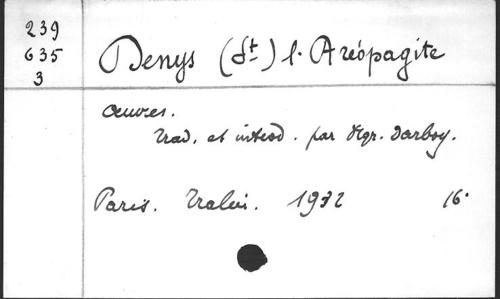 239
635
3
Denys (St) l. Aréopagite
Œuvres.
Trad. et introd. par Mgr. Darboy.
Paris. Tralin. 1932 16°